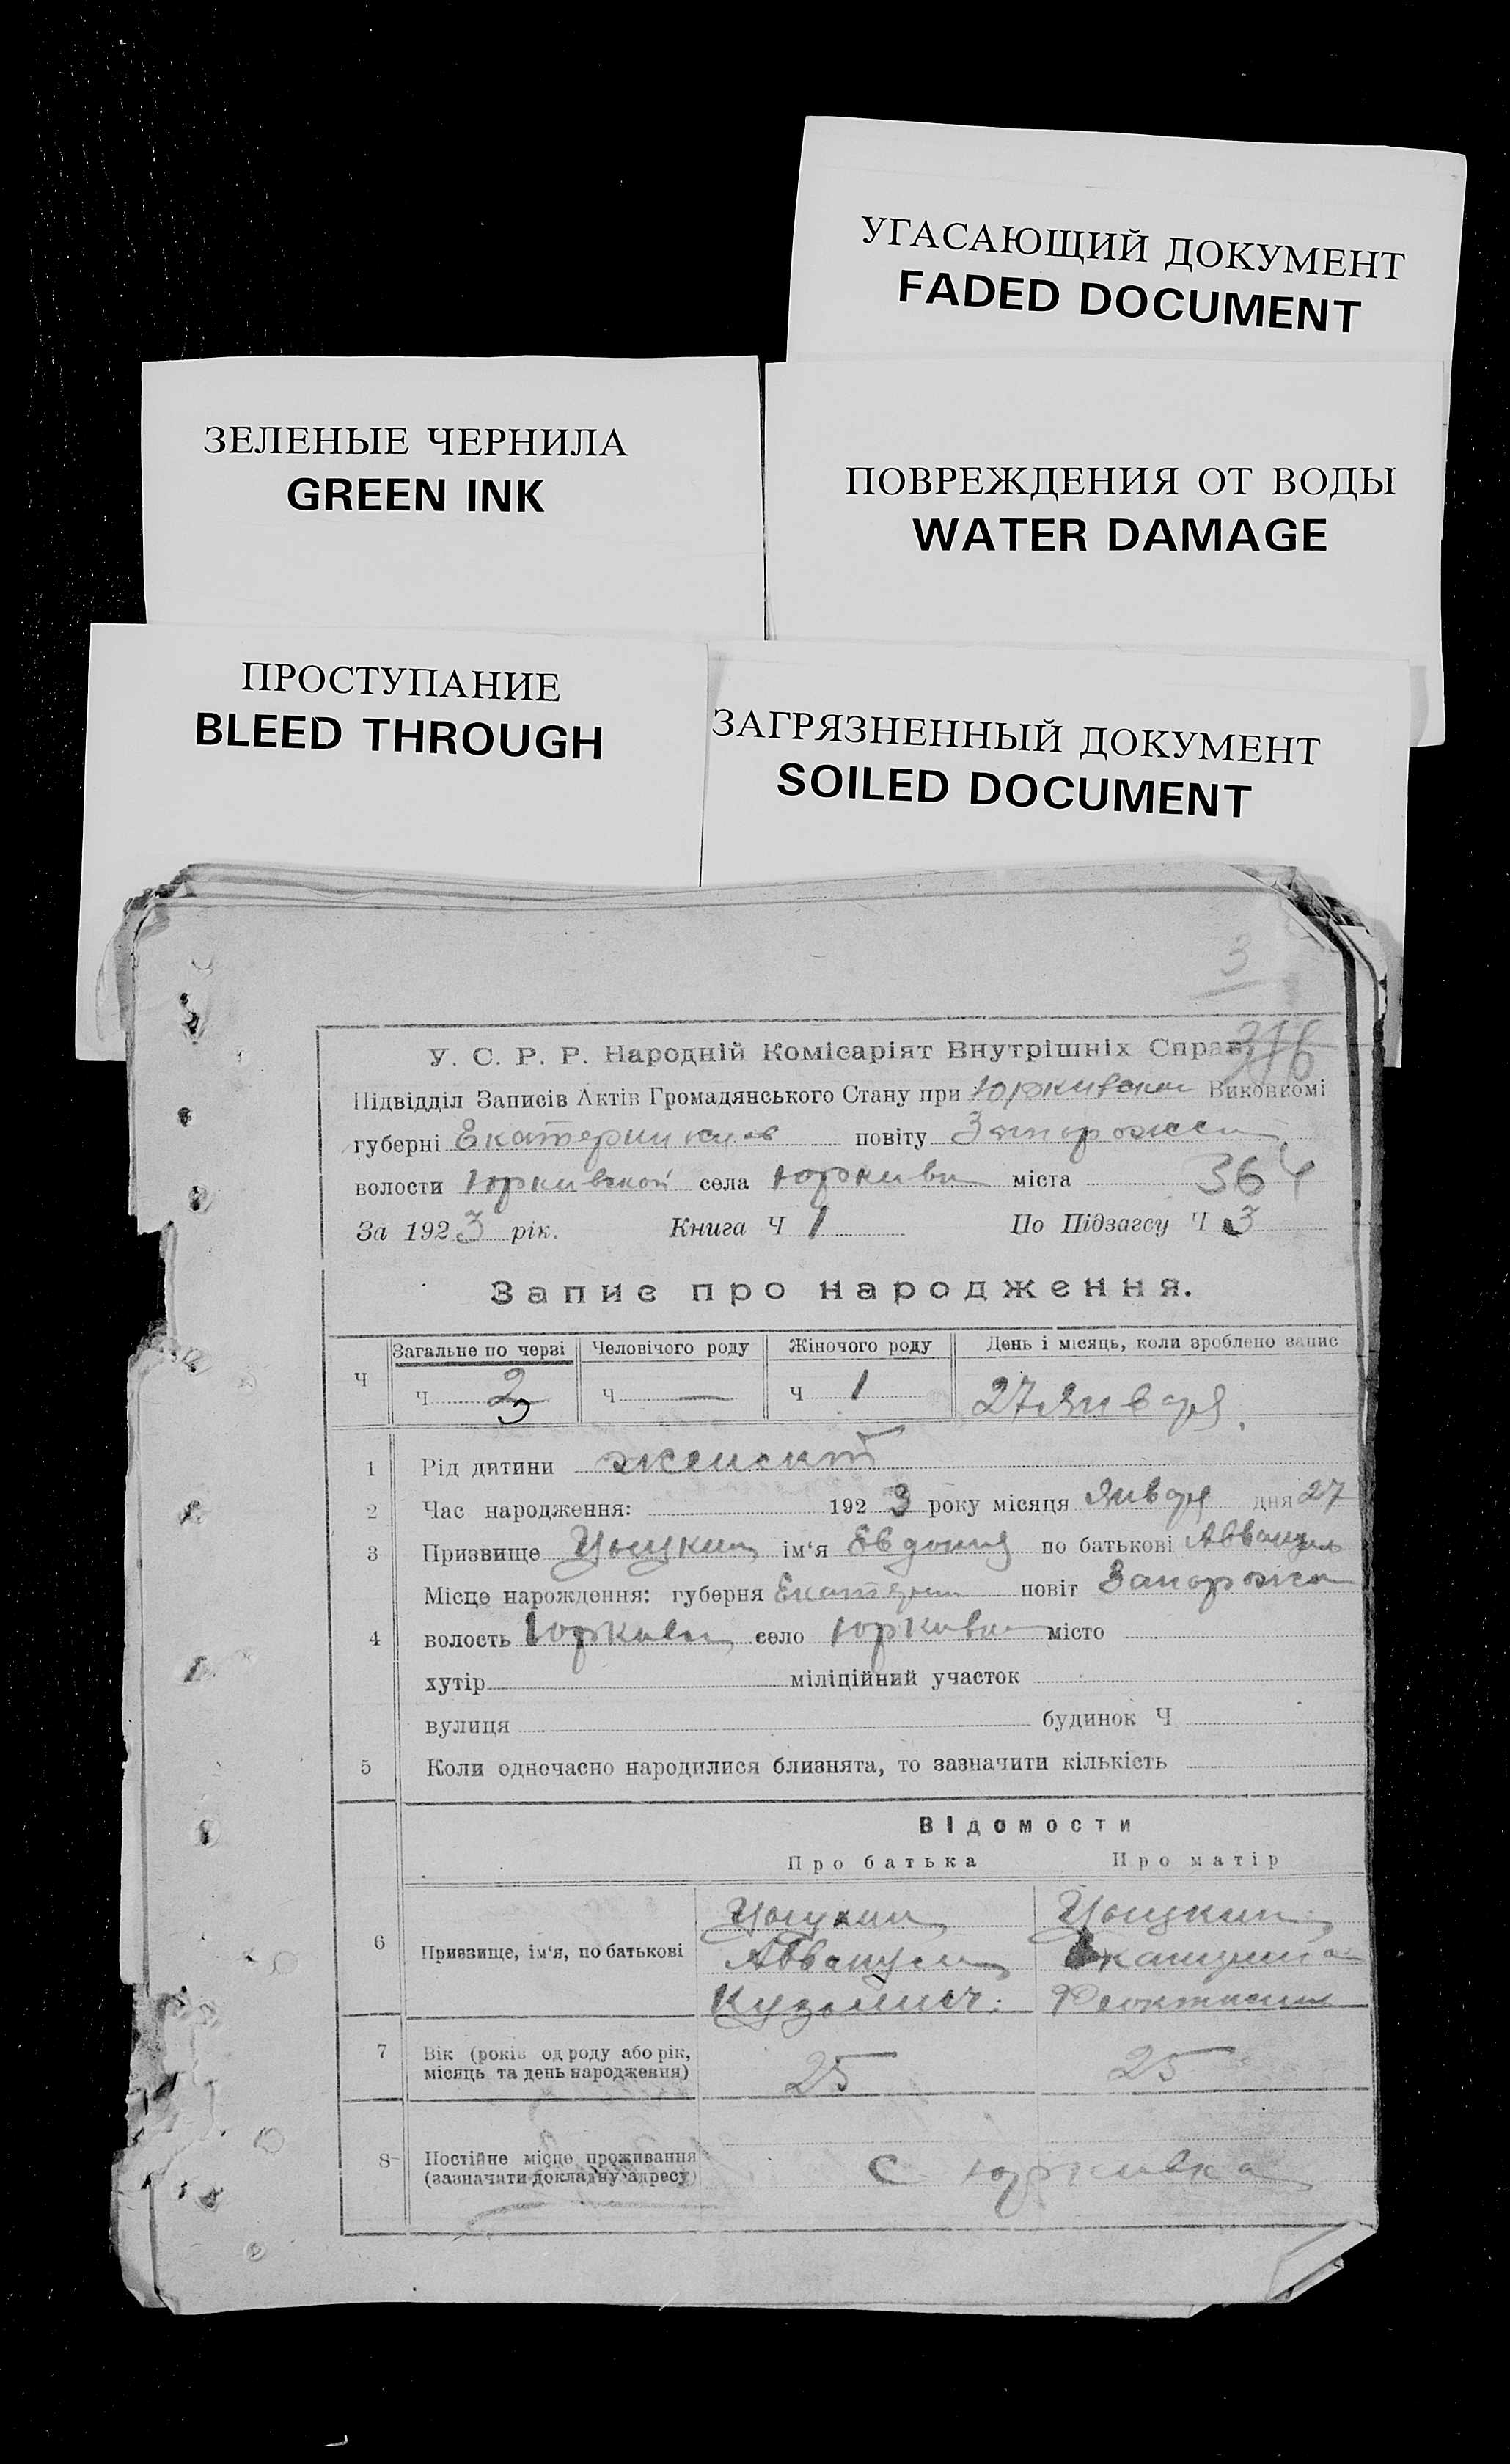 УГАСАЮЩИЙ ДОКУМЕНТ
FADED DOCUMENT
ЗЕЛЕНЫЕ ЧЕРНИЛА
GREEN INK
ПОВРЕЖДЕНИЯ ОТ ВОДЫ
WATER DAMAGE
ПРОСТУПАНИЕ
BLEED THROUGH
ЗАГРЯЗНЕННЫЙ ДОКУМЕНТ
SOILED DOCUMENT
3
У. С. Р. Р. Народній Комісаріят Внутрішніх Справ.
Підвідділ Записів Актів Громадянського Стану при Юркивском Виконкомі
губерні повіту
волости Юркивской села міста 364
За 1923 рік. Книга Ч 1 По Підзагсу Ч 3
Запис про народження.
Ч Загальне по черзі Человічого роду Жіночого роду День і місяць, коли зроблено запис
Ч Ч — Ч 1 27 Января
1 Рід дитини женский
2 Час народження: 1923 року місяця Января дня 27
3 Призвище ім‘я Евдокия по батькові
Місце нарождення: губерня повіт
4 волость село місто
хутір міліційний участок
вулиця будинок Ч
5 Коли одночасно народилися близнята, то зазначити кількість
Відомости
Про батька Про матір
6 Призвище, ім‘я, по батькові
Кузьмич.
7 Вік (років од роду або рік, місяць та день народження) 25 25
8 Постійне місце проживання (зазначити докладну адресу) с Юркивка